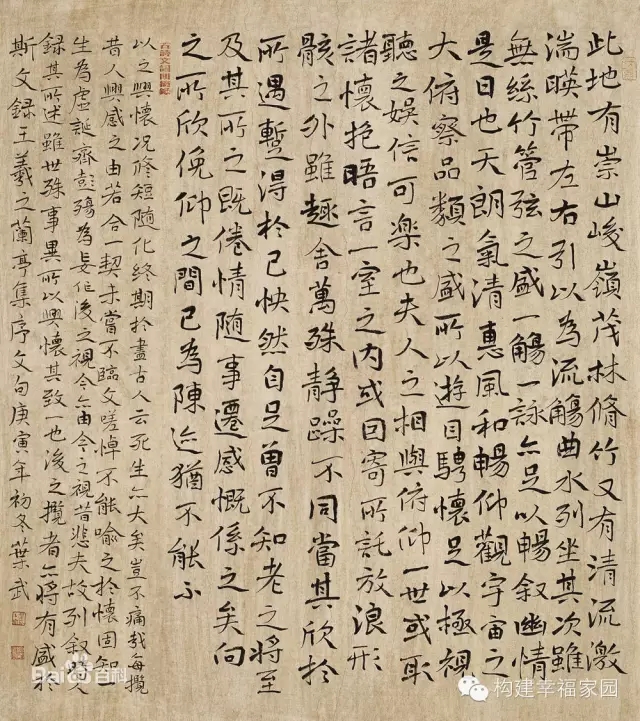 此地有崇山峻嶺茂林脩竹又有清流激
湍暎帶左右引以為流觴曲水列坐其次雖
無絲竹管弦之盛一觴一詠亦足以暢叙幽情
是日也天朗氣清惠風和暢仰觀宇宙之
大俯察品類之盛所以遊目騁懷足以極視
聽之娛信可樂也夫人之相與俯仰一世或取
諸懷抱晤言一室之内或因寄所託放浪形
骸之外雖趣舍萬殊静躁不同當其欣於
所遇蹔得於己怏然自足曾不知老之將至
及其所之既倦情随事遷感慨係之矣向
之所欣俛仰之間已為陳迹猶不能不
以之興懷況修短随化終期於盡古人云死生亦大矣豈不痛哉每攬
昔人興感之由若合一契未嘗不臨文嗟悼不能喻之於懷固知一
生為虛誕齊彭殤為妄作後之視今亦由今之視昔悲夫故列叙時人
録其所述雖世殊事異所以興懷其致一也後之攬者亦將有感於
斯文録王羲之蘭亭集序文句庚寅年初冬葉武
Bai百科
构建幸福家园